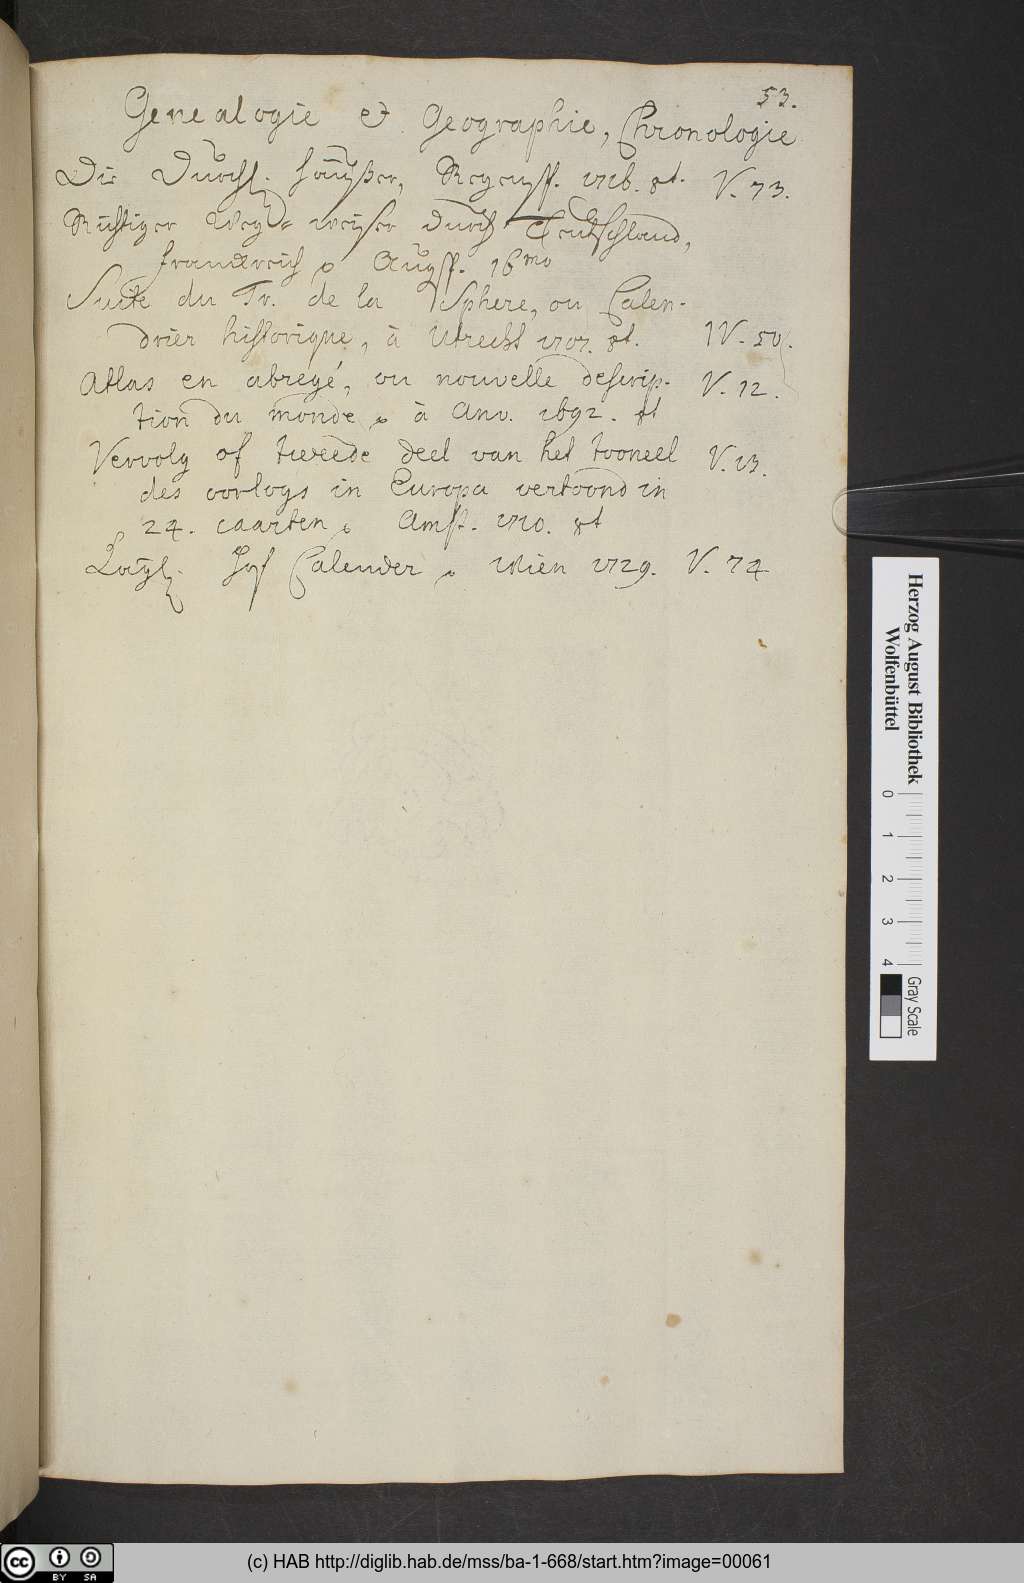 53.
Genealogie & Geographie, Chronologie
Die Durchl. Häußer, Regensp. 1716. 8t. V. 73.
Richtiger Weg-weiser durch Teutschland,
Franckreich Augsp. 16mo
Suite du Tr. de la Sphere, ou Calen-
drier historique, à Utrecht 1707. 8t. IV. 50.
Atlas en abregé, ou nouvelle descrip- V. 12.
tion du monde à Anv. 1692. 8t
Vervolg of tweede deel van het tooneel V. 13.
des oorlogs in Europa vertoond in
24. caarten, Amst. 1710. 8t
Kayl. Hof Calender, Wien 1729. V. 74
Herzog August Bibliothek
Wolfenbüttel
0 1 2 3 4
Gray Scale
cc BY SA
(c) HAB http://diglib.hab.de/mss/ba-1-668/start.htm?image=00061